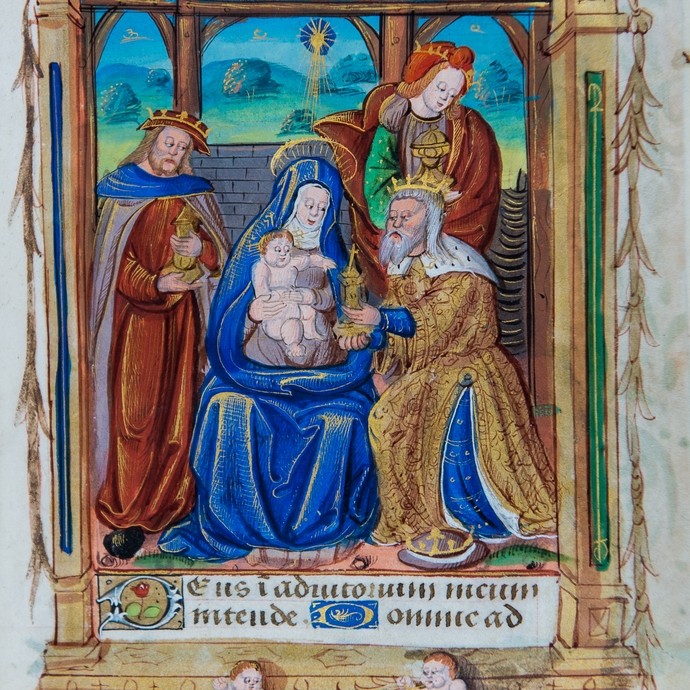 Deus ī adiutorium meum
intende. Domine ad